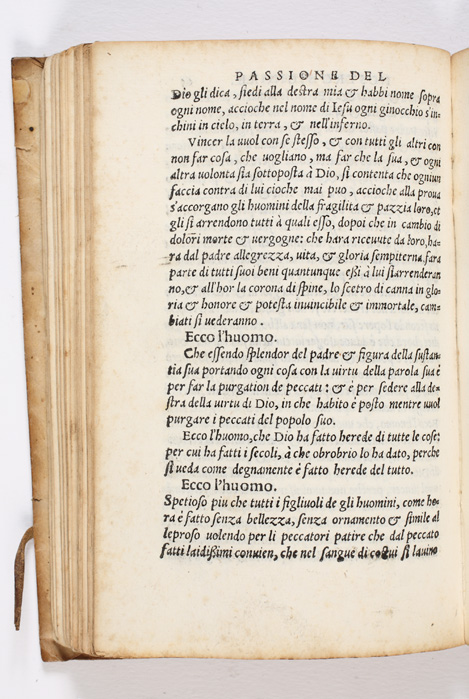 PASSIONE DEL
Dio gli dica, siedi alla destra mia & habbi nome sopra
ogni nome, accioche nel nome di Iesu ogni ginocchio s'in-
chini in cielo, in terra, & nell'inferno.
Vincer la vuol con se stesso, & con tutti gli altri con
non far cosa, che uogliano, ma far che la sua, & ogni
altra uolonta sia sottoposta à Dio, si contenta che ogniun
faccia contra di lui cioche mai puo, accioche alla proua
s'accorgano gli huomini della fragilita & pazzia loro, et
gli si arrendono tutti à quali esso, dopoi che in cambio di
dolori morte & uergogne: che hara riceuute da loro, ha-
ra dal padre allegrezza, uita, & gloria sempiterna, fara
parte di tutti suoi beni quantunque essi à lui s'arrenderan
no, & all'hor la corona di spine, lo scetro di canna in glo-
ria & honore & potesta inuincibile & immortale, cam-
biati si uederanno.
Ecco l'huomo.
Che essendo splendor del padre & figura della sustan
tia sua portando ogni cosa con la virtu della parola sua è
per far la purgation de peccati: & è per sedere alla de-
stra della uirtu di Dio, in che habito è posto mentre uuol
purgare i peccati del popolo suo.
Ecco l'huomo, che Dio ha fatto herede di tutte le cose:
per cui ha fatti i secoli, à che obrobrio lo ha dato, perche
si ueda come degnamente è fatto herede del tutto.
Ecco l'huomo.
Spetioso piu che tutti i figliuoli de gli huomini, come ho-
ra è fatto senza bellezza, senza ornamento & simile al
leproso uolendo per li peccatori patire che dal peccato
fatti laidissimi conuien, che nel sangue di costui si lauino